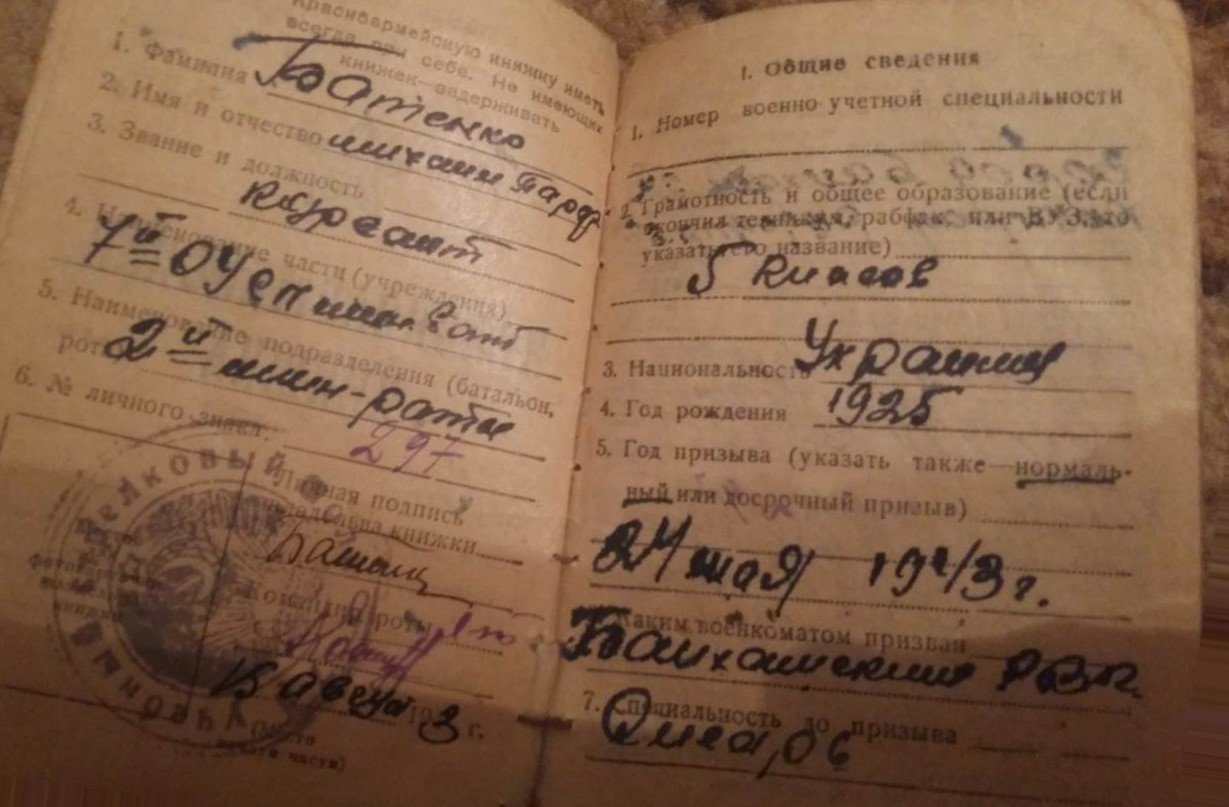 Красноармейскую книжку иметь
всегда при себе. Не имеющих
книжек—задерживать
1. Фамилия Батенко
2. Имя и отчество михаил Парф
3. Звание и должность
Курсант
4. Наименование части (учреждения)
7й ОУСП мин. бат
5. Наименование подразделения (батальон,
рота) 2й мин-рота
6. № личного знака. 297
Личная подпись
владельца книжки
Командир роты
15 август 193 г.
(Место
печати части)
СТРЕЛКОВЫЙ
УЧЕБНЫЙ
I. Общие сведения
1. Номер военно-учетной специальности
2. Грамотность и общее образование (если
окончил техникум, рабфак или ВУЗ, то
указать его название)
5 класов
3. Национальность Украинец
4. Год рождения 1925
5. Год призыва (указать также—нормаль-
ный или досрочный призыв)
24 мая 1943 г.
Каким военкоматом призван
Балхашский РВК
7. Специальность до призыва
Слесарь